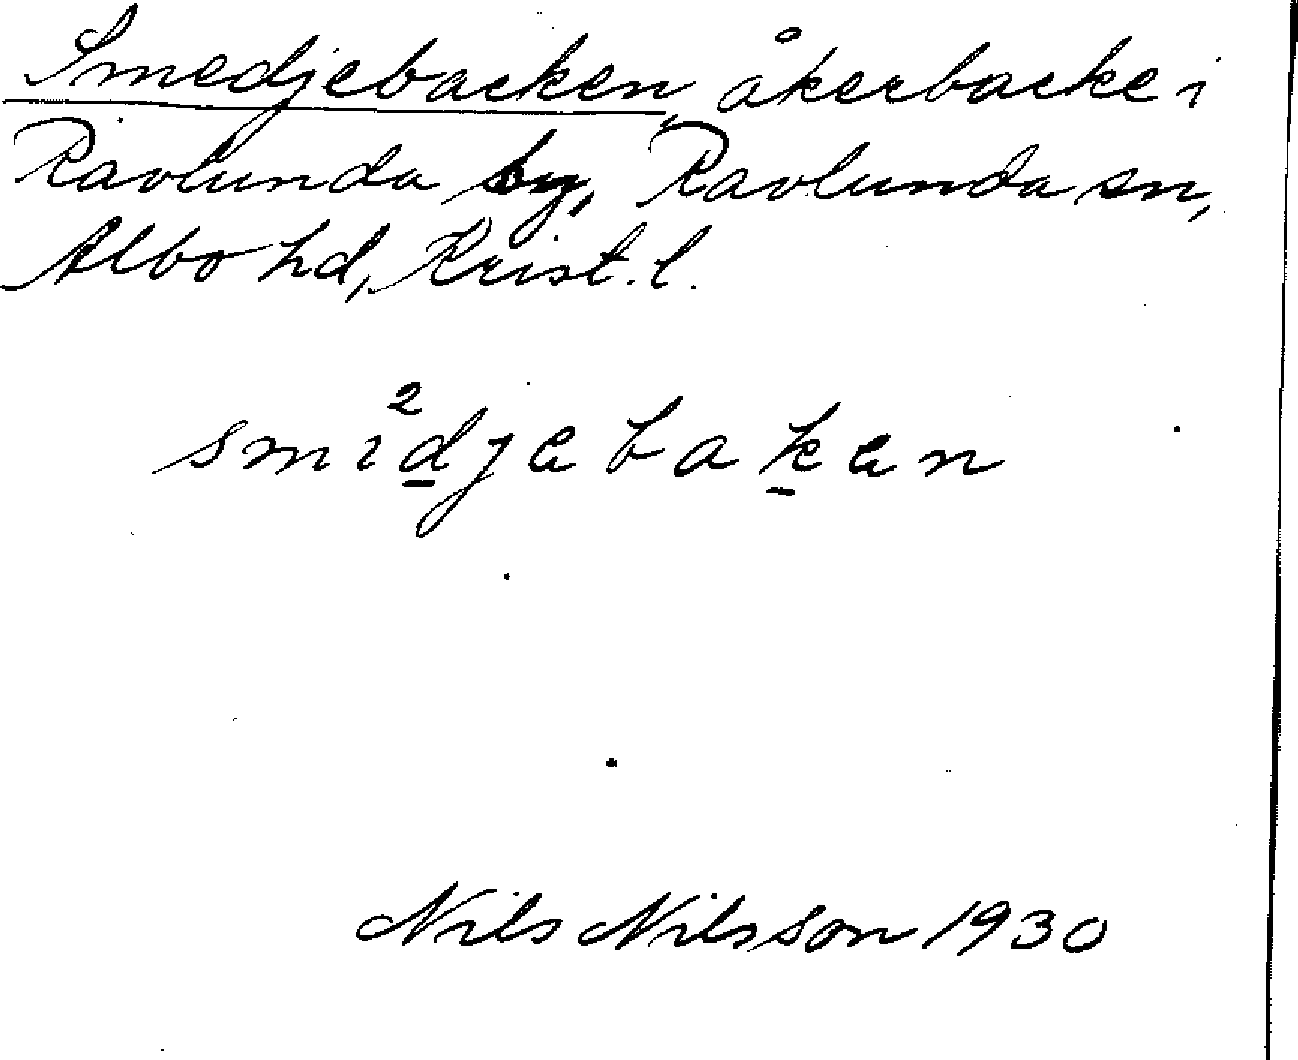 Smedjebacken, åkerbacke i
Ravlunda by, Ravlunda sn,
Albo hd, Krist. l.
smi²djebaken
Nils Nilsson 1930